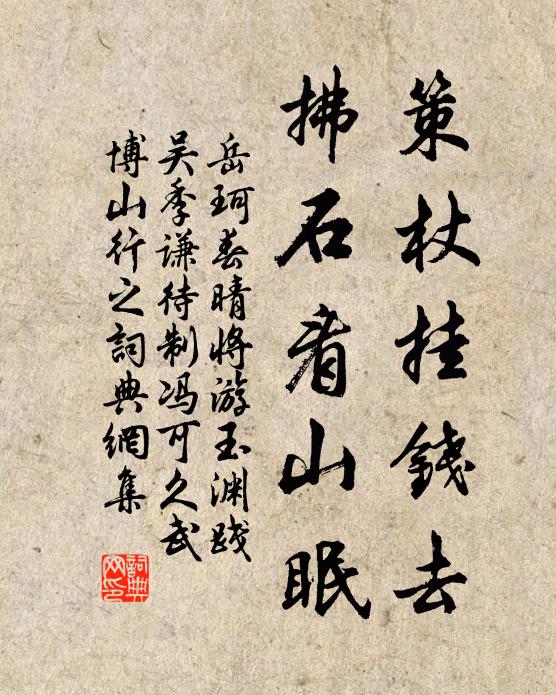 策杖挂錢去
拂石看山眠
岳珂春晴将游玉渊践
吴季谦待制冯可久武
博山行之詞典網集
詞典网印